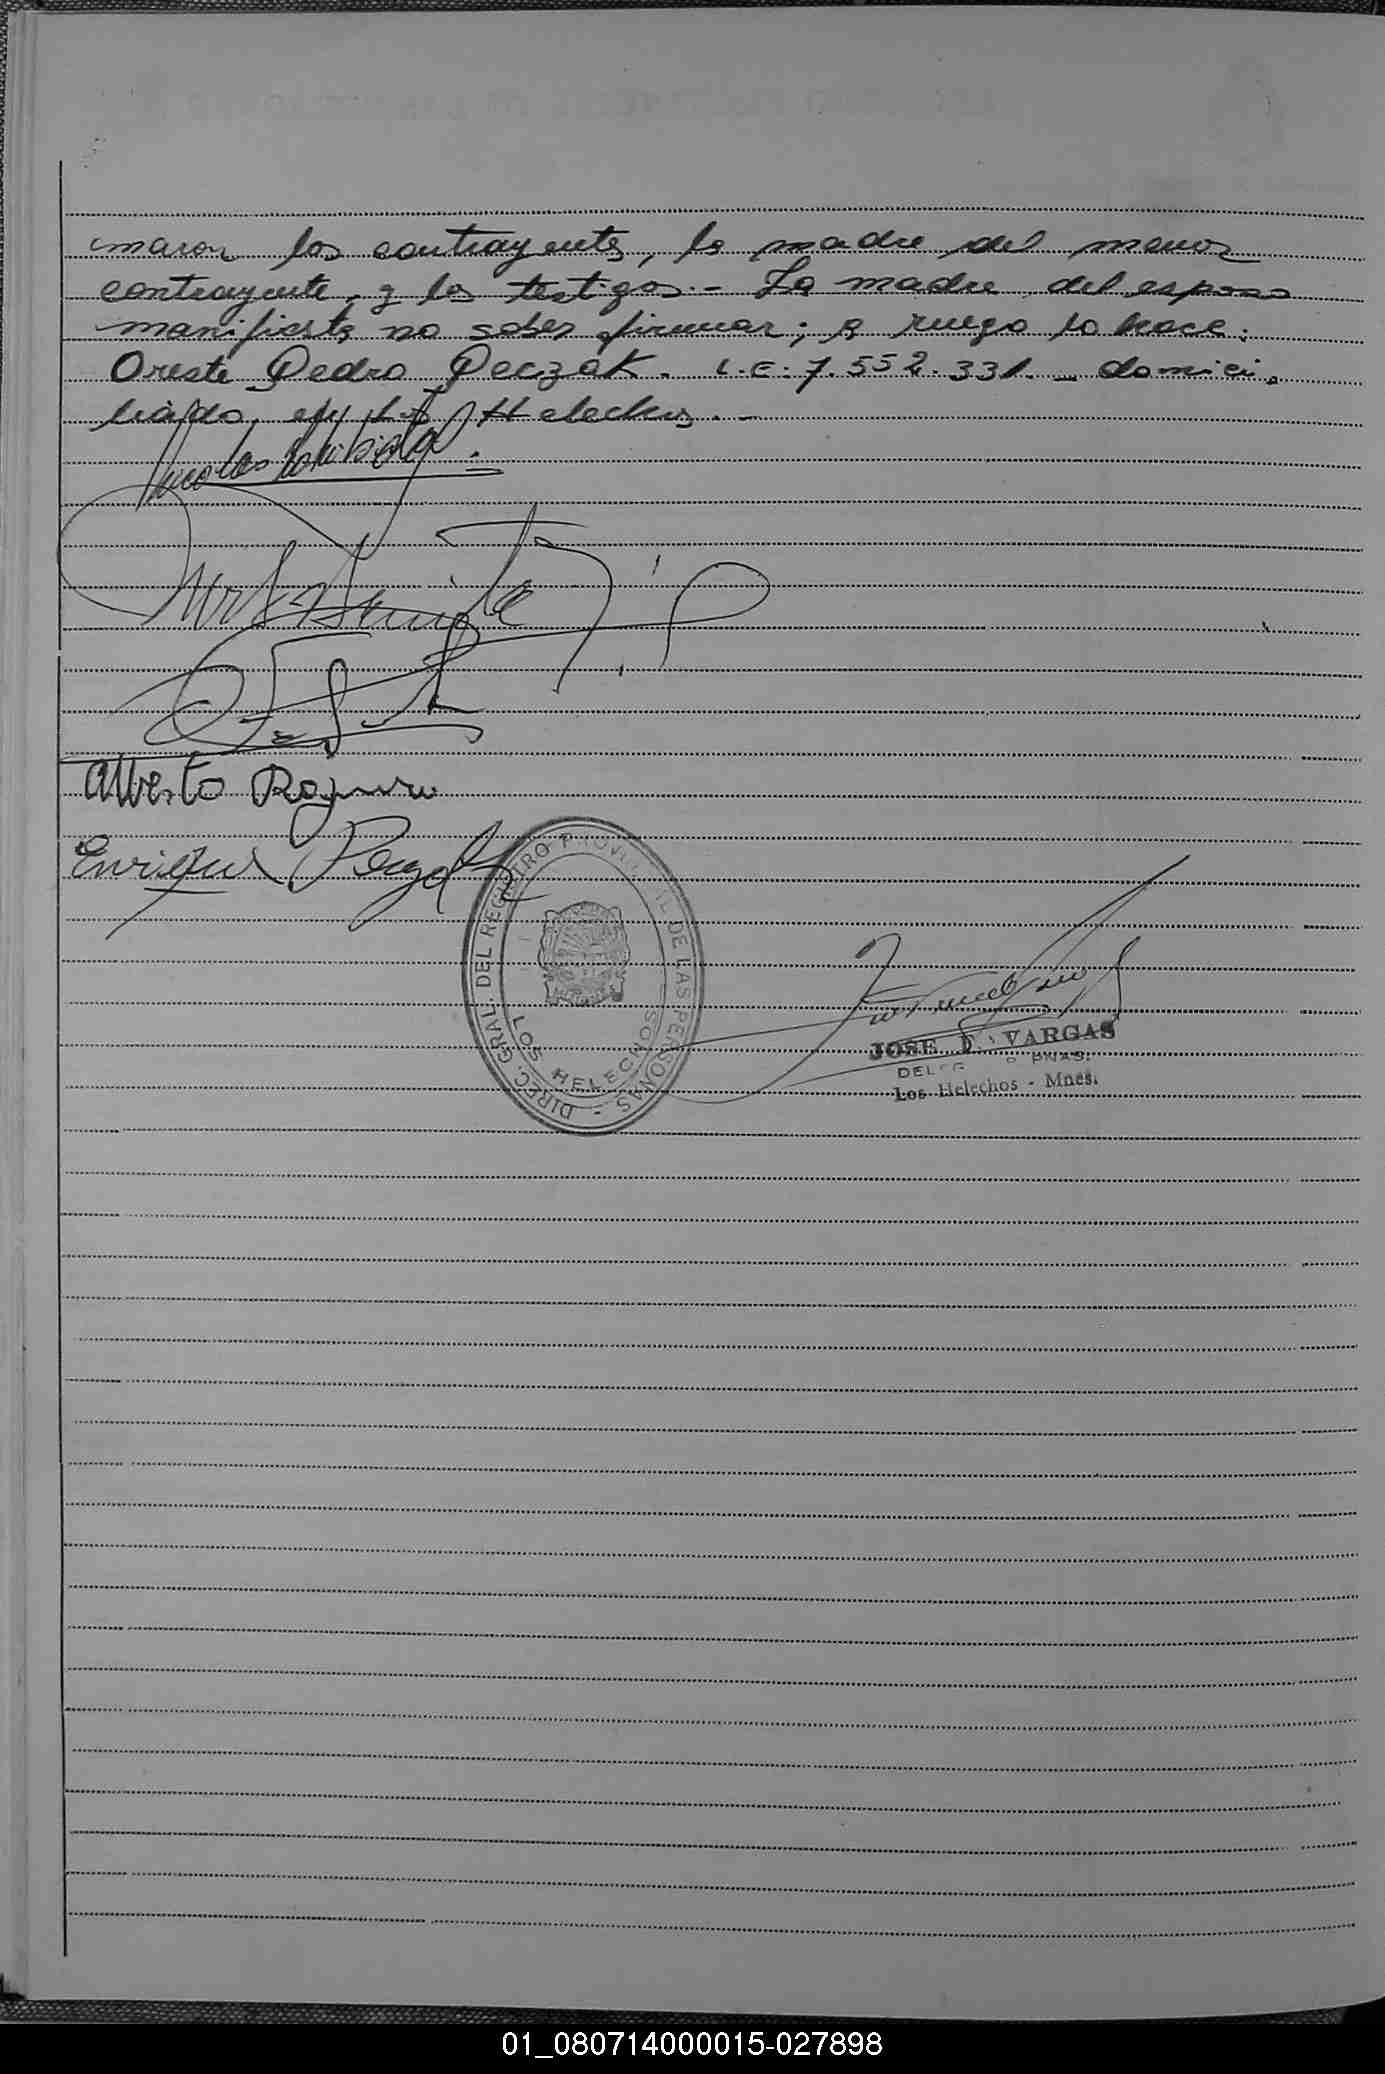 maron los contrayentes, la madre del menor
contrayente, y los testigos.- La madre del esposo
manifiesta no saber firmar; a ruego lo hace:
Oreste Pedro Peczak. L.E. 7.552.331.- domici.
liado, en Los Helechos.-
Nicolas
Alberto
Enrique
DIREC. GRAL. DEL REGISTRO PROVINCIAL DE LAS PERSONAS -
LOS HELECHOS
JOSE D. VARGAS
Los Helechos - Mnes.
01_080714000015-027898